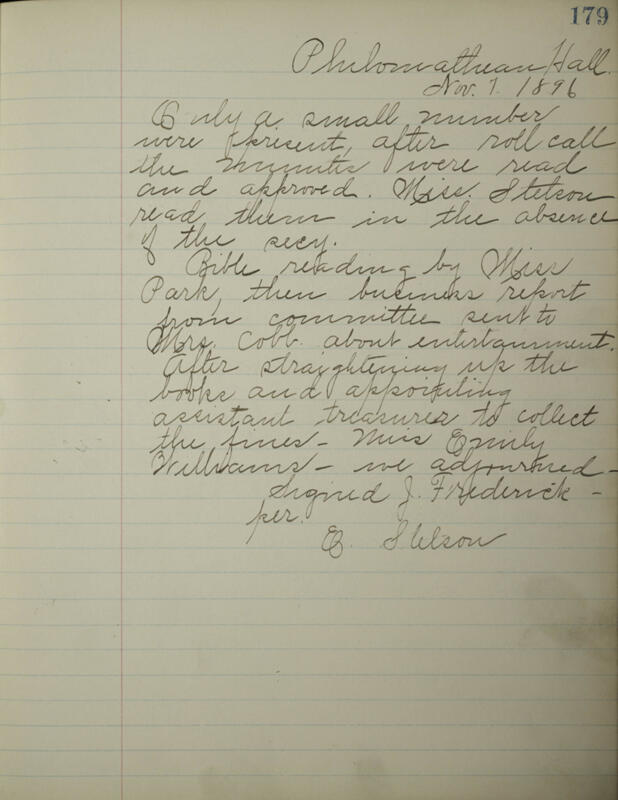 179
Philomathean Hall.
Nov. 7. 1896
Only a small number
were present, after roll call
the minutes were read
and approved. Miss. Stetson
read them in the absence
of the secy.
Bible reading by Miss
Park, then business report
from committee sent to
Mrs. Cobb. about entertainment.
After straightening up the
books and appointing
assistant treasurer to collect
the fines - Miss Emily
Williams - we adjourned -
Signed J. Frederick -
per.
E. Stetson